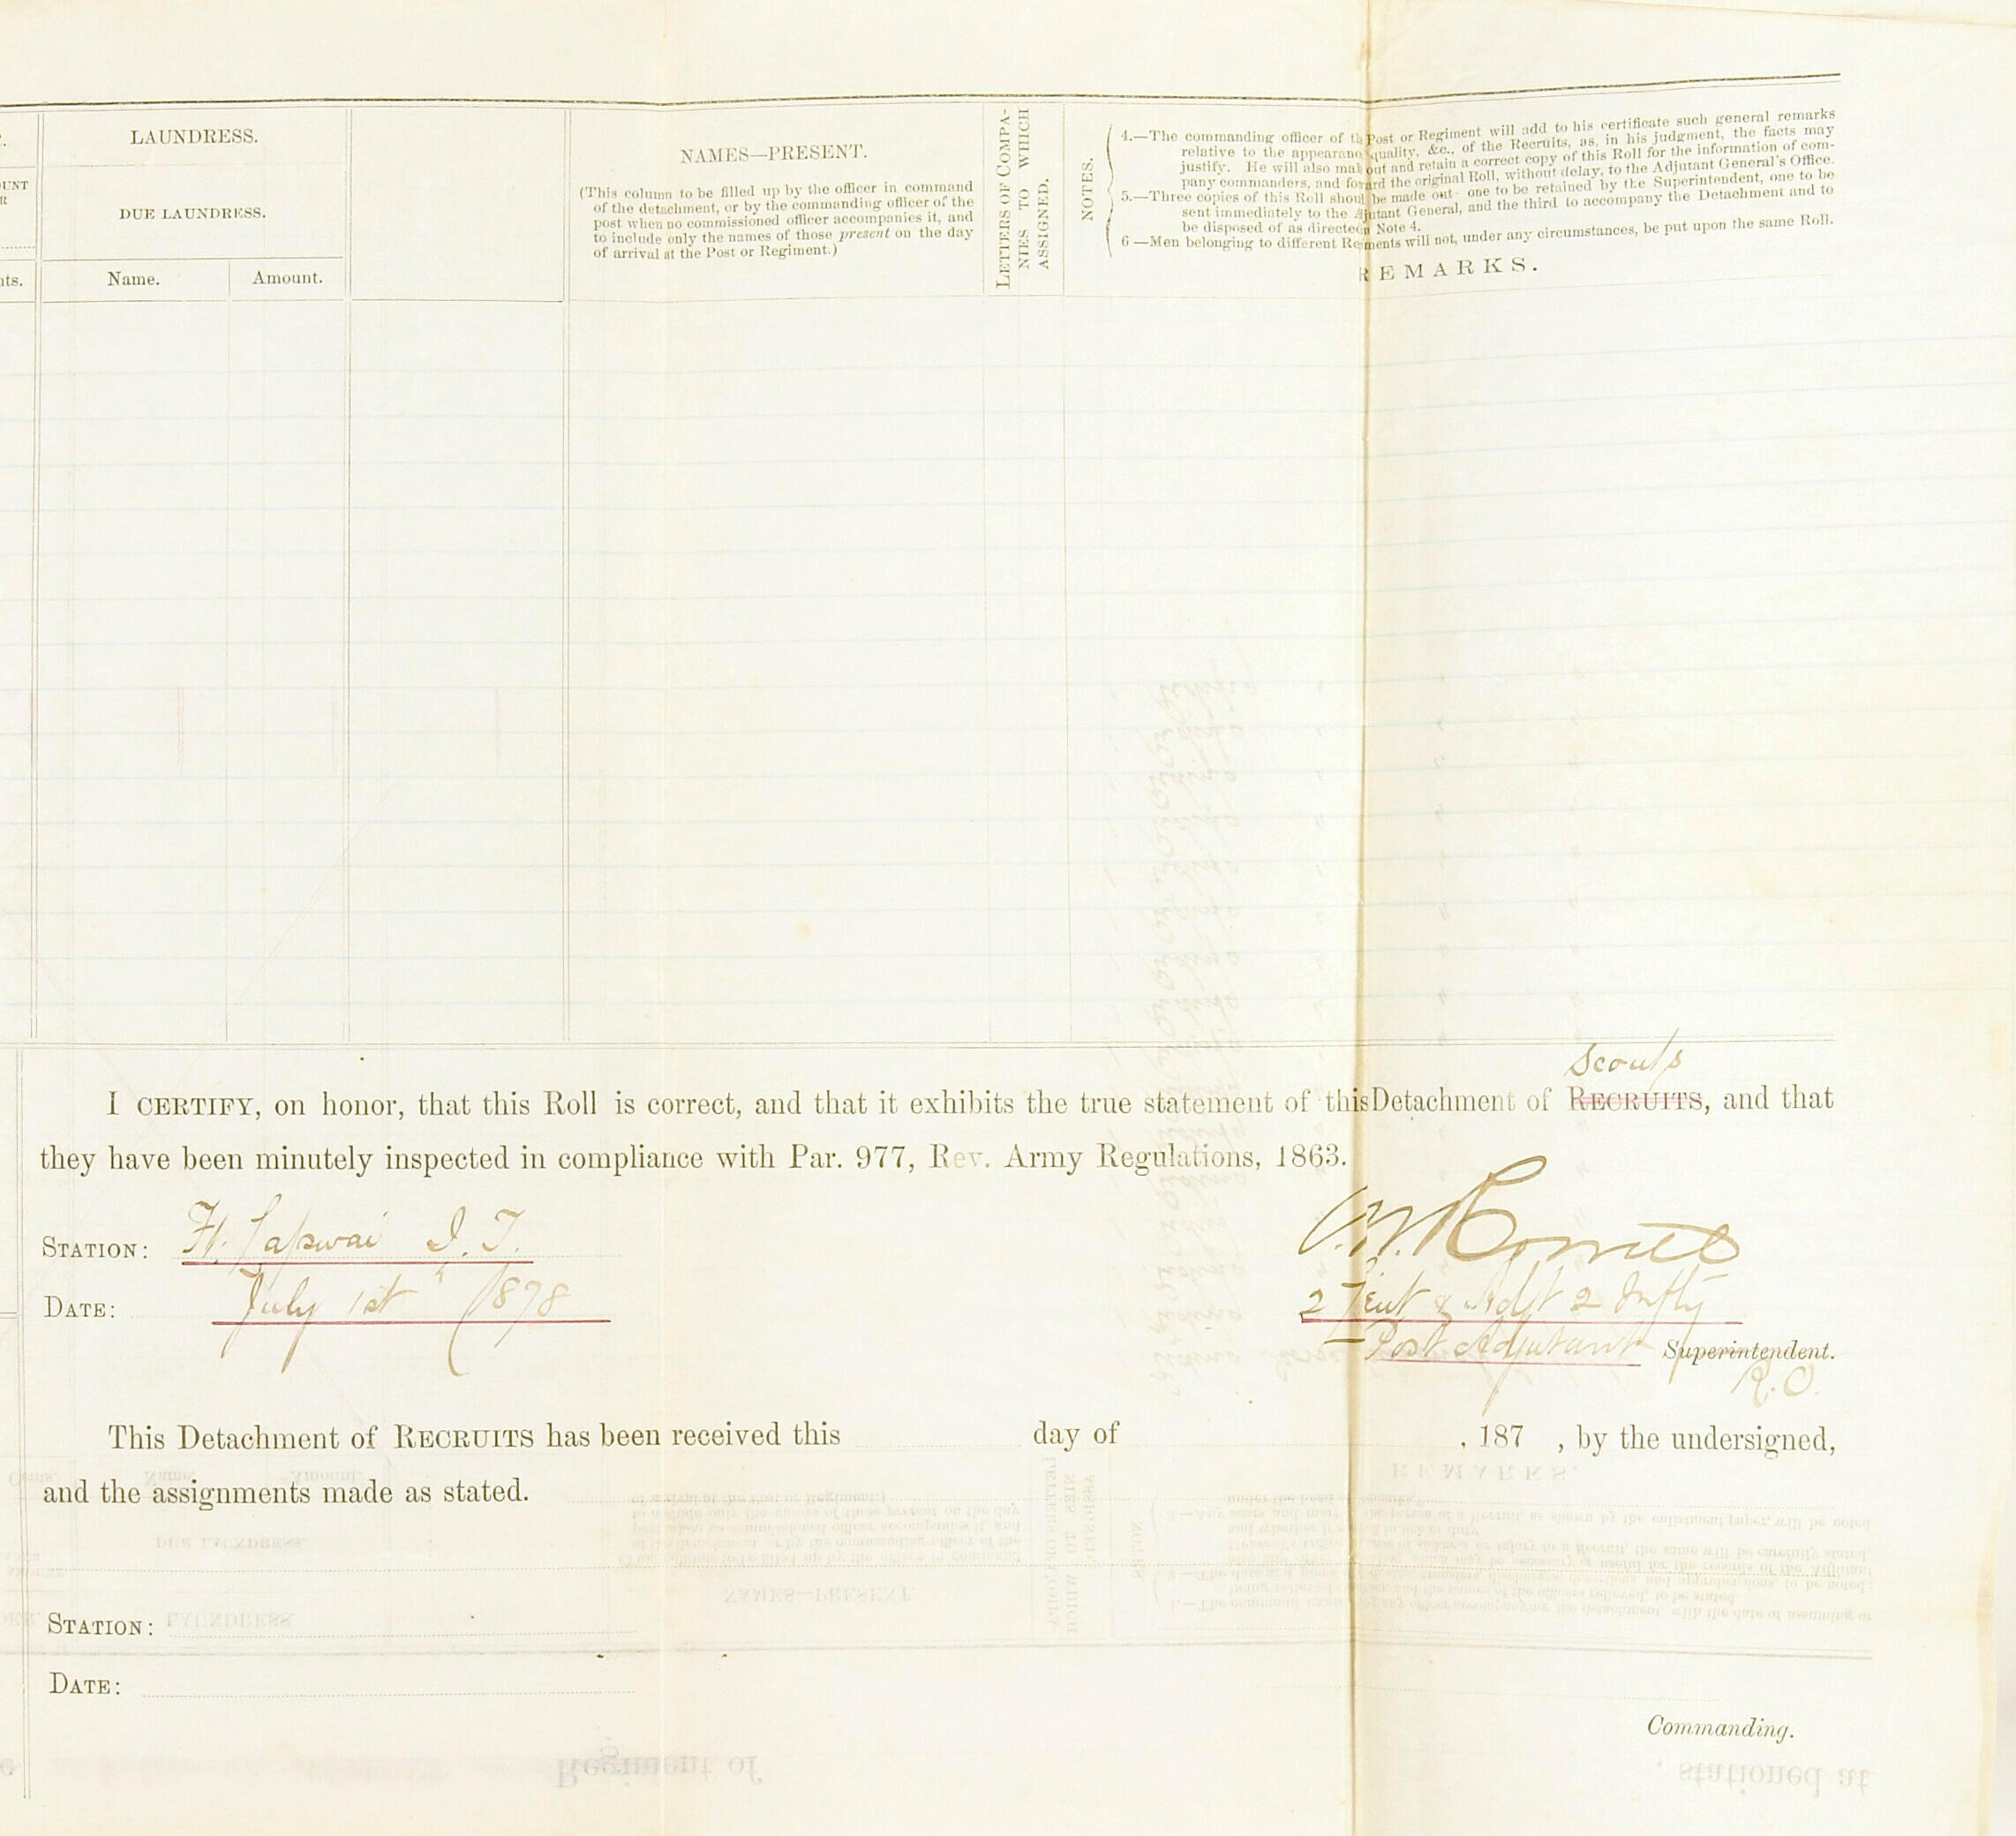 LAUNDRESS.
DUE LAUNDRESS.
Name. Amount.
NAMES—PRESENT.
(This column to be filled up by the officer in command
of the detachment, or by the commanding officer of the
post when no commissioned officer accompanies it, and
to include only the names of those present on the day
of arrival at the Post or Regiment.)
LETTERS OF COMPA-
NIES TO WHICH
ASSIGNED.
NOTES.
4.—The commanding officer of th Post or Regiment will add to his certificate such general remarks
relative to the appearanc quality, &c., of the Recruits, as, in his judgment, the facts may
justify. He will also mak out and retain a correct copy of this Roll for the information of com-
pany commanders, and forward the original Roll, without delay, to the Adjutant General's Office.
5.—Three copies of this Roll shoul be made out—one to be retained by the Superintendent, one to be
sent immediately to the Adjutant General, and the third to accompany the Detachment and to
be disposed of as directed in Note 4.
6—Men belonging to different Regiments will not, under any circumstances, be put upon the same Roll.
REMARKS.
Scouts
I CERTIFY, on honor, that this Roll is correct, and that it exhibits the true statement of this Detachment of RECRUITS, and that
they have been minutely inspected in compliance with Par. 977, Rev. Army Regulations, 1863.
STATION: Ft. Lapwai I.T.
DATE: July 1st 1878
2 Lieut & Adjt 2 Infty
Post Adjutant Superintendent.
R.O.
This Detachment of RECRUITS has been received this day of , 187 , by the undersigned,
and the assignments made as stated.
STATION:
DATE:
Commanding.